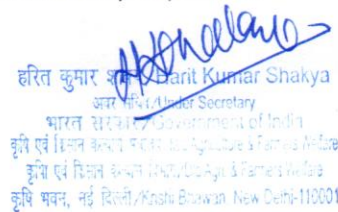 हरित कुमार Harit Kumar Shakya
अवर सचिव/Under Secretary
भारत सरकार/Government of India
कृषि एवं किसान कल्याण Agriculture & Farmers Welfare
कृषि एवं किसान कल्याण Agri. & Farmers Welfare
कृषि भवन, नई दिल्ली/Krishi Bhawan, New Delhi-110001